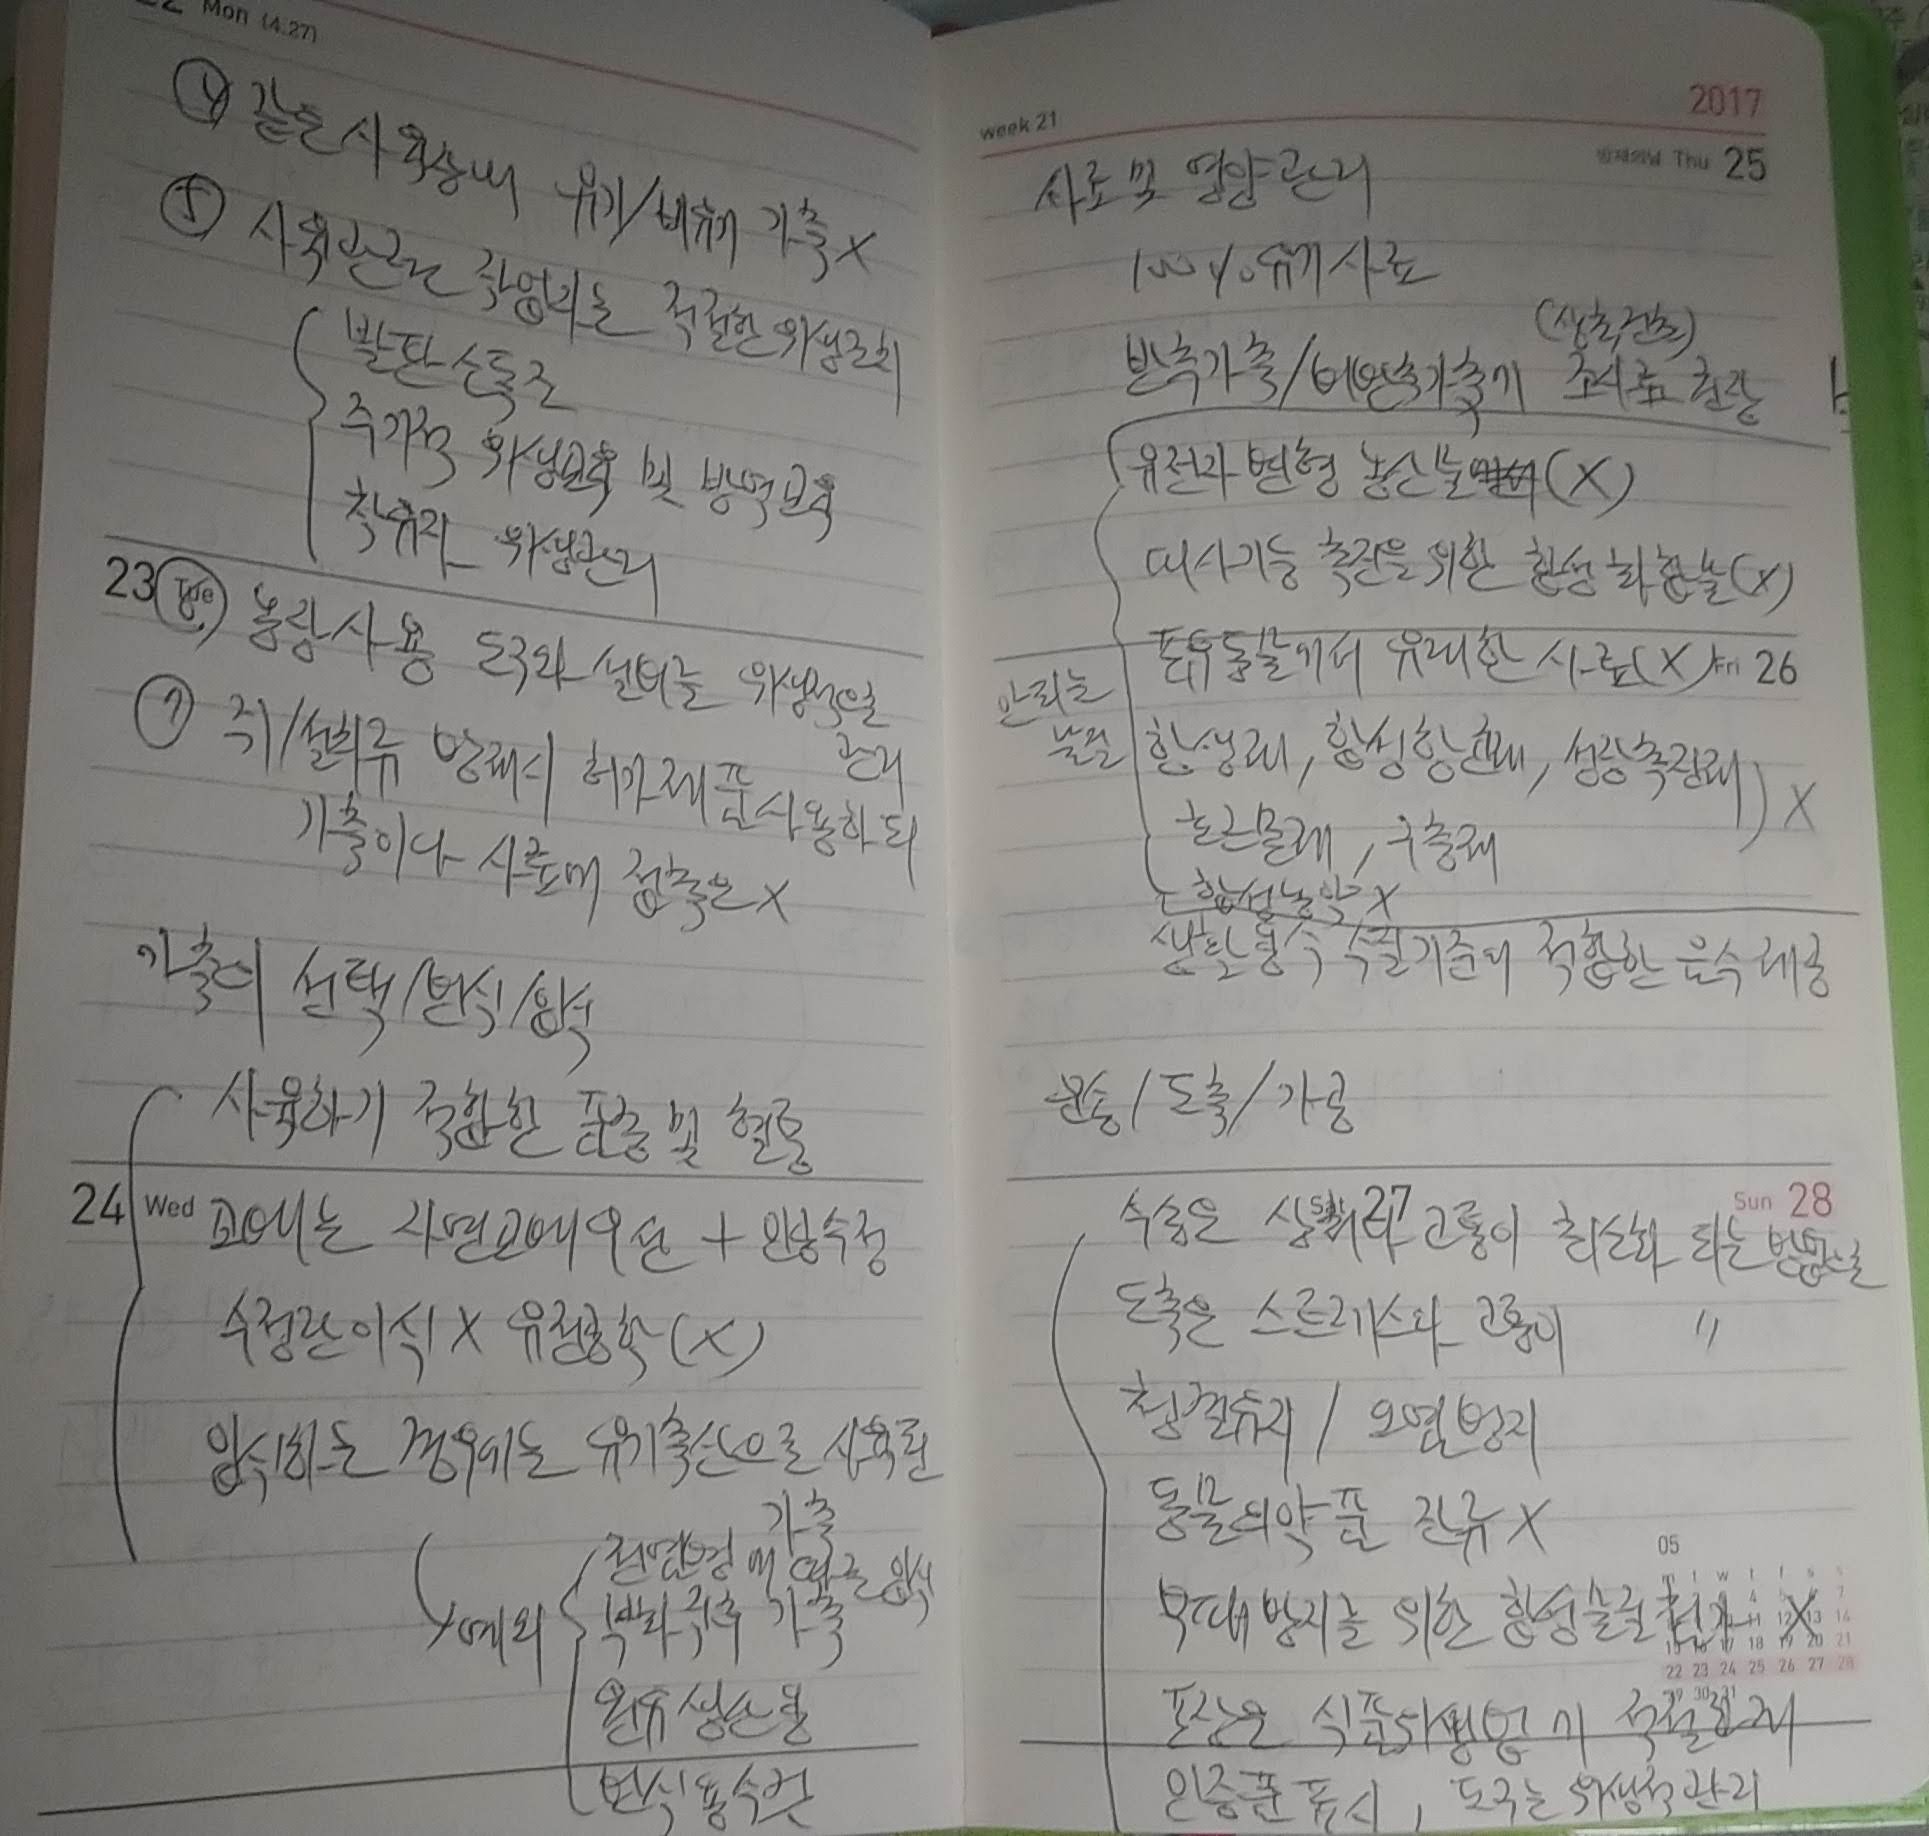 22 Mon (4.27)
④ 같은 사육장내 유기/비유기 가축 X
⑤ 사육관련 작업자는 적절한 위생조치
발판소독조
주기적 위생교육 및 방역교육
착유자 위생관리
23 Tue
⑥ 농장사용 도구와 설비는 위생적으로
관리
⑦ 쥐/설치류 방제시 허가제품 사용하되
가축이나 사료에 접촉은 X
가축의 선택/번식/입식
사육하기 적합한 품종 및 혈통
24 Wed
교배는 자연교배 우선 + 인공수정
수정란이식 X 유전공학(X)
입식하는 경우에는 유기축산으로 사육된
가축
예외
전염병에 따른 입식
부화 직후 가축
원유생산용
번식용 수컷
2017
week 21
Thu 25
사료 및 영양관리
100% 유기사료
(생초건초)
반추가축/비반추가축에 조사료 권장
유전자 변형 농산물 (X)
대사기능 촉진을 위한 합성화합물(X)
포유동물에서 유래한 사료(X)
Fri 26
안되는
물질
항생제, 합성항균제, 성장촉진제
호르몬제, 구충제
) X
합성농약 X
생활용수 수질기준에 적합한 음수 제공
운송/도축/가공
27
Sun 28
수송은 상해나 고통이 최소화 되는 방법으로
도축은 스트레스와 고통이 〃
청결유지 / 오염방지
동물의약품 잔류 X
부패방지를 위한 합성물질 첨가 X
포장은 식품위생법에 적절한
인증품 표시, 도구는 위생적 관리
05
m t w t f s s
22 23 24 25 26 27 28
29 30 31